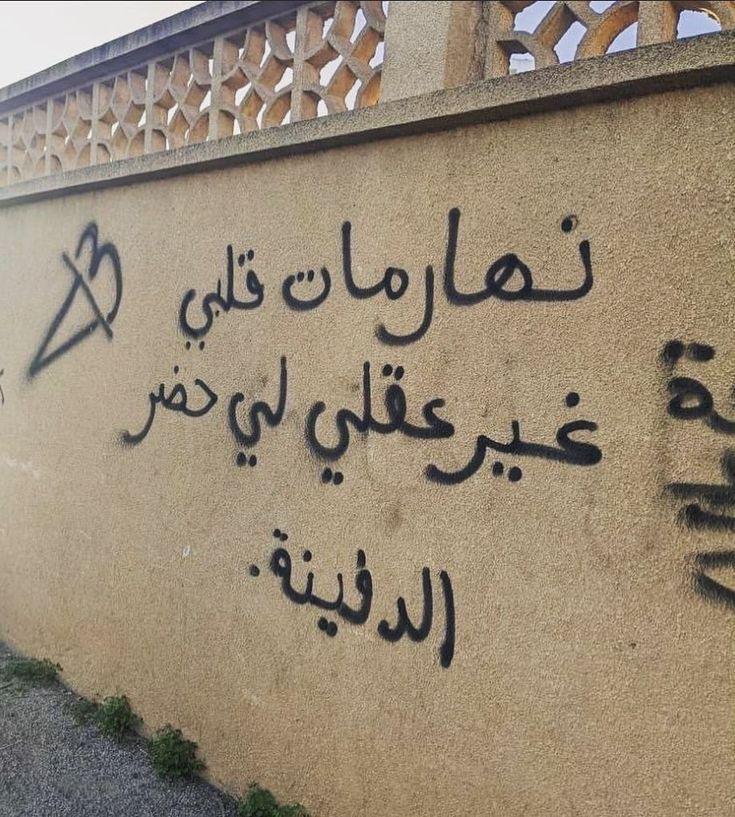 نهار مات قلبي
غير عقلي لي حضر
الدفينة.